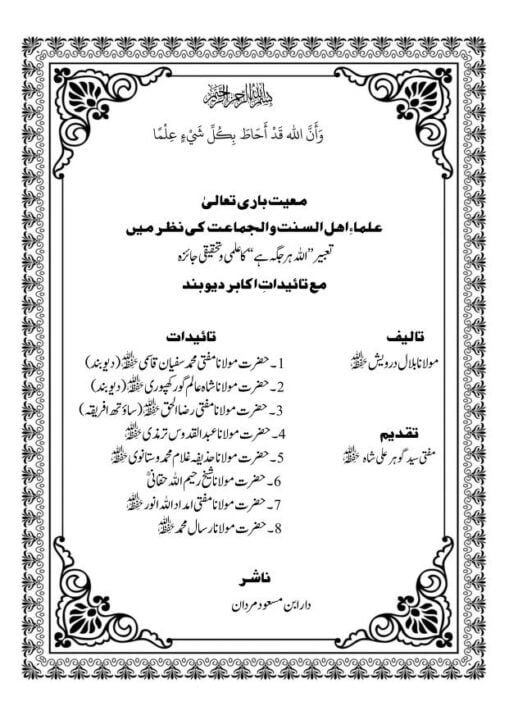 بسم الله الرحمن الرحيم
وَأَنَّ اللهَ قَدْ أَحَاطَ بِكُلِّ شَيْءٍ عِلْمًا
معیت باری تعالیٰ
علماءِ اهل السنت والجماعت کی نظر میں
تعبیر ”اللہ ہر جگہ ہے“ کا علمی و تحقیقی جائزہ
مع تائیداتِ اکابر دیوبند
تالیف
مولانا بلال درویش حفظہ اللہ
تقدیم
مفتی سید گوہر علی شاہ حفظہ اللہ
تائیدات
1۔ حضرت مولانا مفتی محمد سفیان قاسمی حفظہ اللہ (دیوبند)
2۔ حضرت مولانا شاہ عالم گورکھپوری حفظہ اللہ (دیوبند)
3۔ حضرت مولانا مفتی رضاء الحق حفظہ اللہ (ساؤتھ افریقہ)
4۔ حضرت مولانا عبد القدوس ترمذی حفظہ اللہ
5۔ حضرت مولانا حذیفہ غلام محمد وستانوی حفظہ اللہ
6۔ حضرت مولانا شیخ رحیم اللہ حقانیؒ
7۔ حضرت مولانا مفتی امداد اللہ انور حفظہ اللہ
8۔ حضرت مولانا رسال محمد حفظہ اللہ
ناشر
دار ابن مسعود مردان